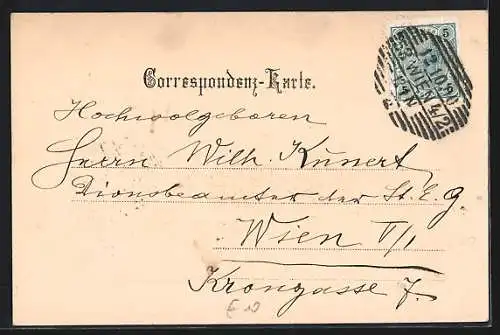 5
13.10.90
53 WIEN 4/2
Correspondenz-Karte.
Hochwolgeboren
Herrn Wilh. Kunert
Dionsbeamter der St. E. G.
Wien V/1
Krongasse 7.